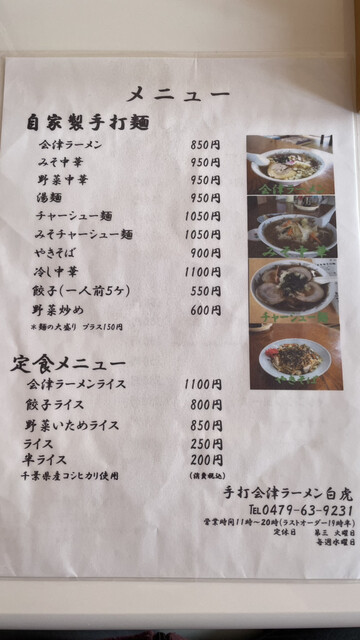 メニュー
自家製手打麺
会津ラーメン 850円
みそ中華 950円
野菜中華 950円
湯麺 950円
チャーシュー麺 1050円
みそチャーシュー麺 1050円
やきそば 900円
冷し中華 1100円
餃子(一人前5ケ) 550円
野菜炒め 600円
※麺の大盛り プラス150円
会津ラーメン
みそ中華
チャーシュー麺
やきそば
定食メニュー
会津ラーメンライス 1100円
餃子ライス 800円
野菜いためライス 850円
ライス 250円
半ライス 200円
千葉県産コシヒカリ使用 (消費税込)
手打会津ラーメン白虎
TEL0479-63-9231
営業時間11時~20時(ラストオーダー19時半)
定休日 第三 火曜日
毎週水曜日